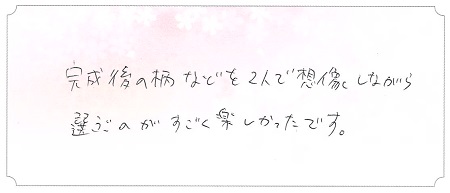 完成後の柄などを2人で想像しながら
選ぶのがすごく楽しかったです。